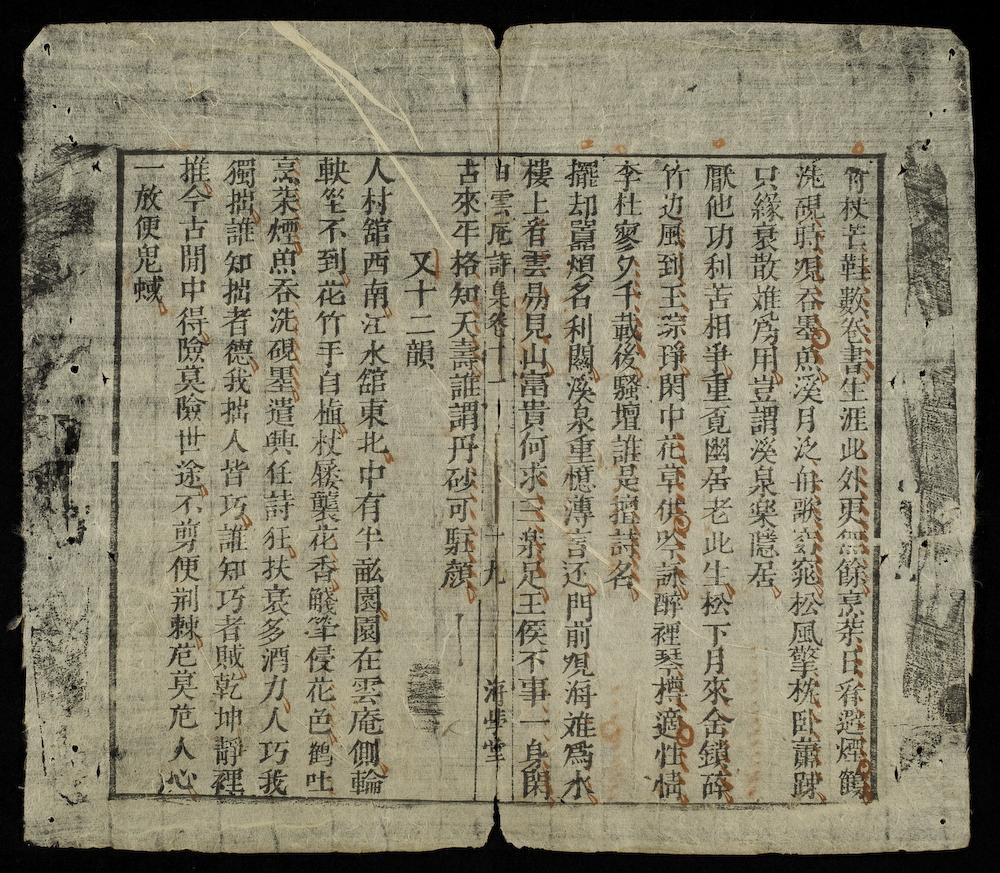 竹杖芒鞋數卷書生涯此外更無餘烹茶日看避煙鶴
洗硯時观吞墨魚溪月泛舟歌窈窕松風擎枕卧蕭踈
只緣衰散难爲用豈謂溪泉楽隱居
厭他功利苦相爭重覔幽居老此生松下月來金鎖碎
竹边風到玉琮琤閑中花草供吟詠醉裡琴樽適性情
李杜寥寥千載後騷壇誰是擅詩名
擺却嚣煩名利關溪泉重憶溥言还門前观海难爲水
樓上看雲易見山富貴何求三楽足王侯不事一身閑
白雲庵詩集卷十一 十九 海學堂
古來年格知天壽誰謂丹砂可駐顔
又十二韻
人村舘西南江水舘東北中有半畝園園在雲庵側輪
軼坐不到花竹手自植杖屦襲花香觴筆侵花色鶴吐
烹茶煙魚吞洗硯墨遣興任詩狂扶衰多酒力人巧我
獨拙誰知拙者德我拙人皆巧誰知巧者賊乾坤靜裡
推今古閒中得險莫險世途不剪便荆棘危莫危人心
一放便鬼蜮